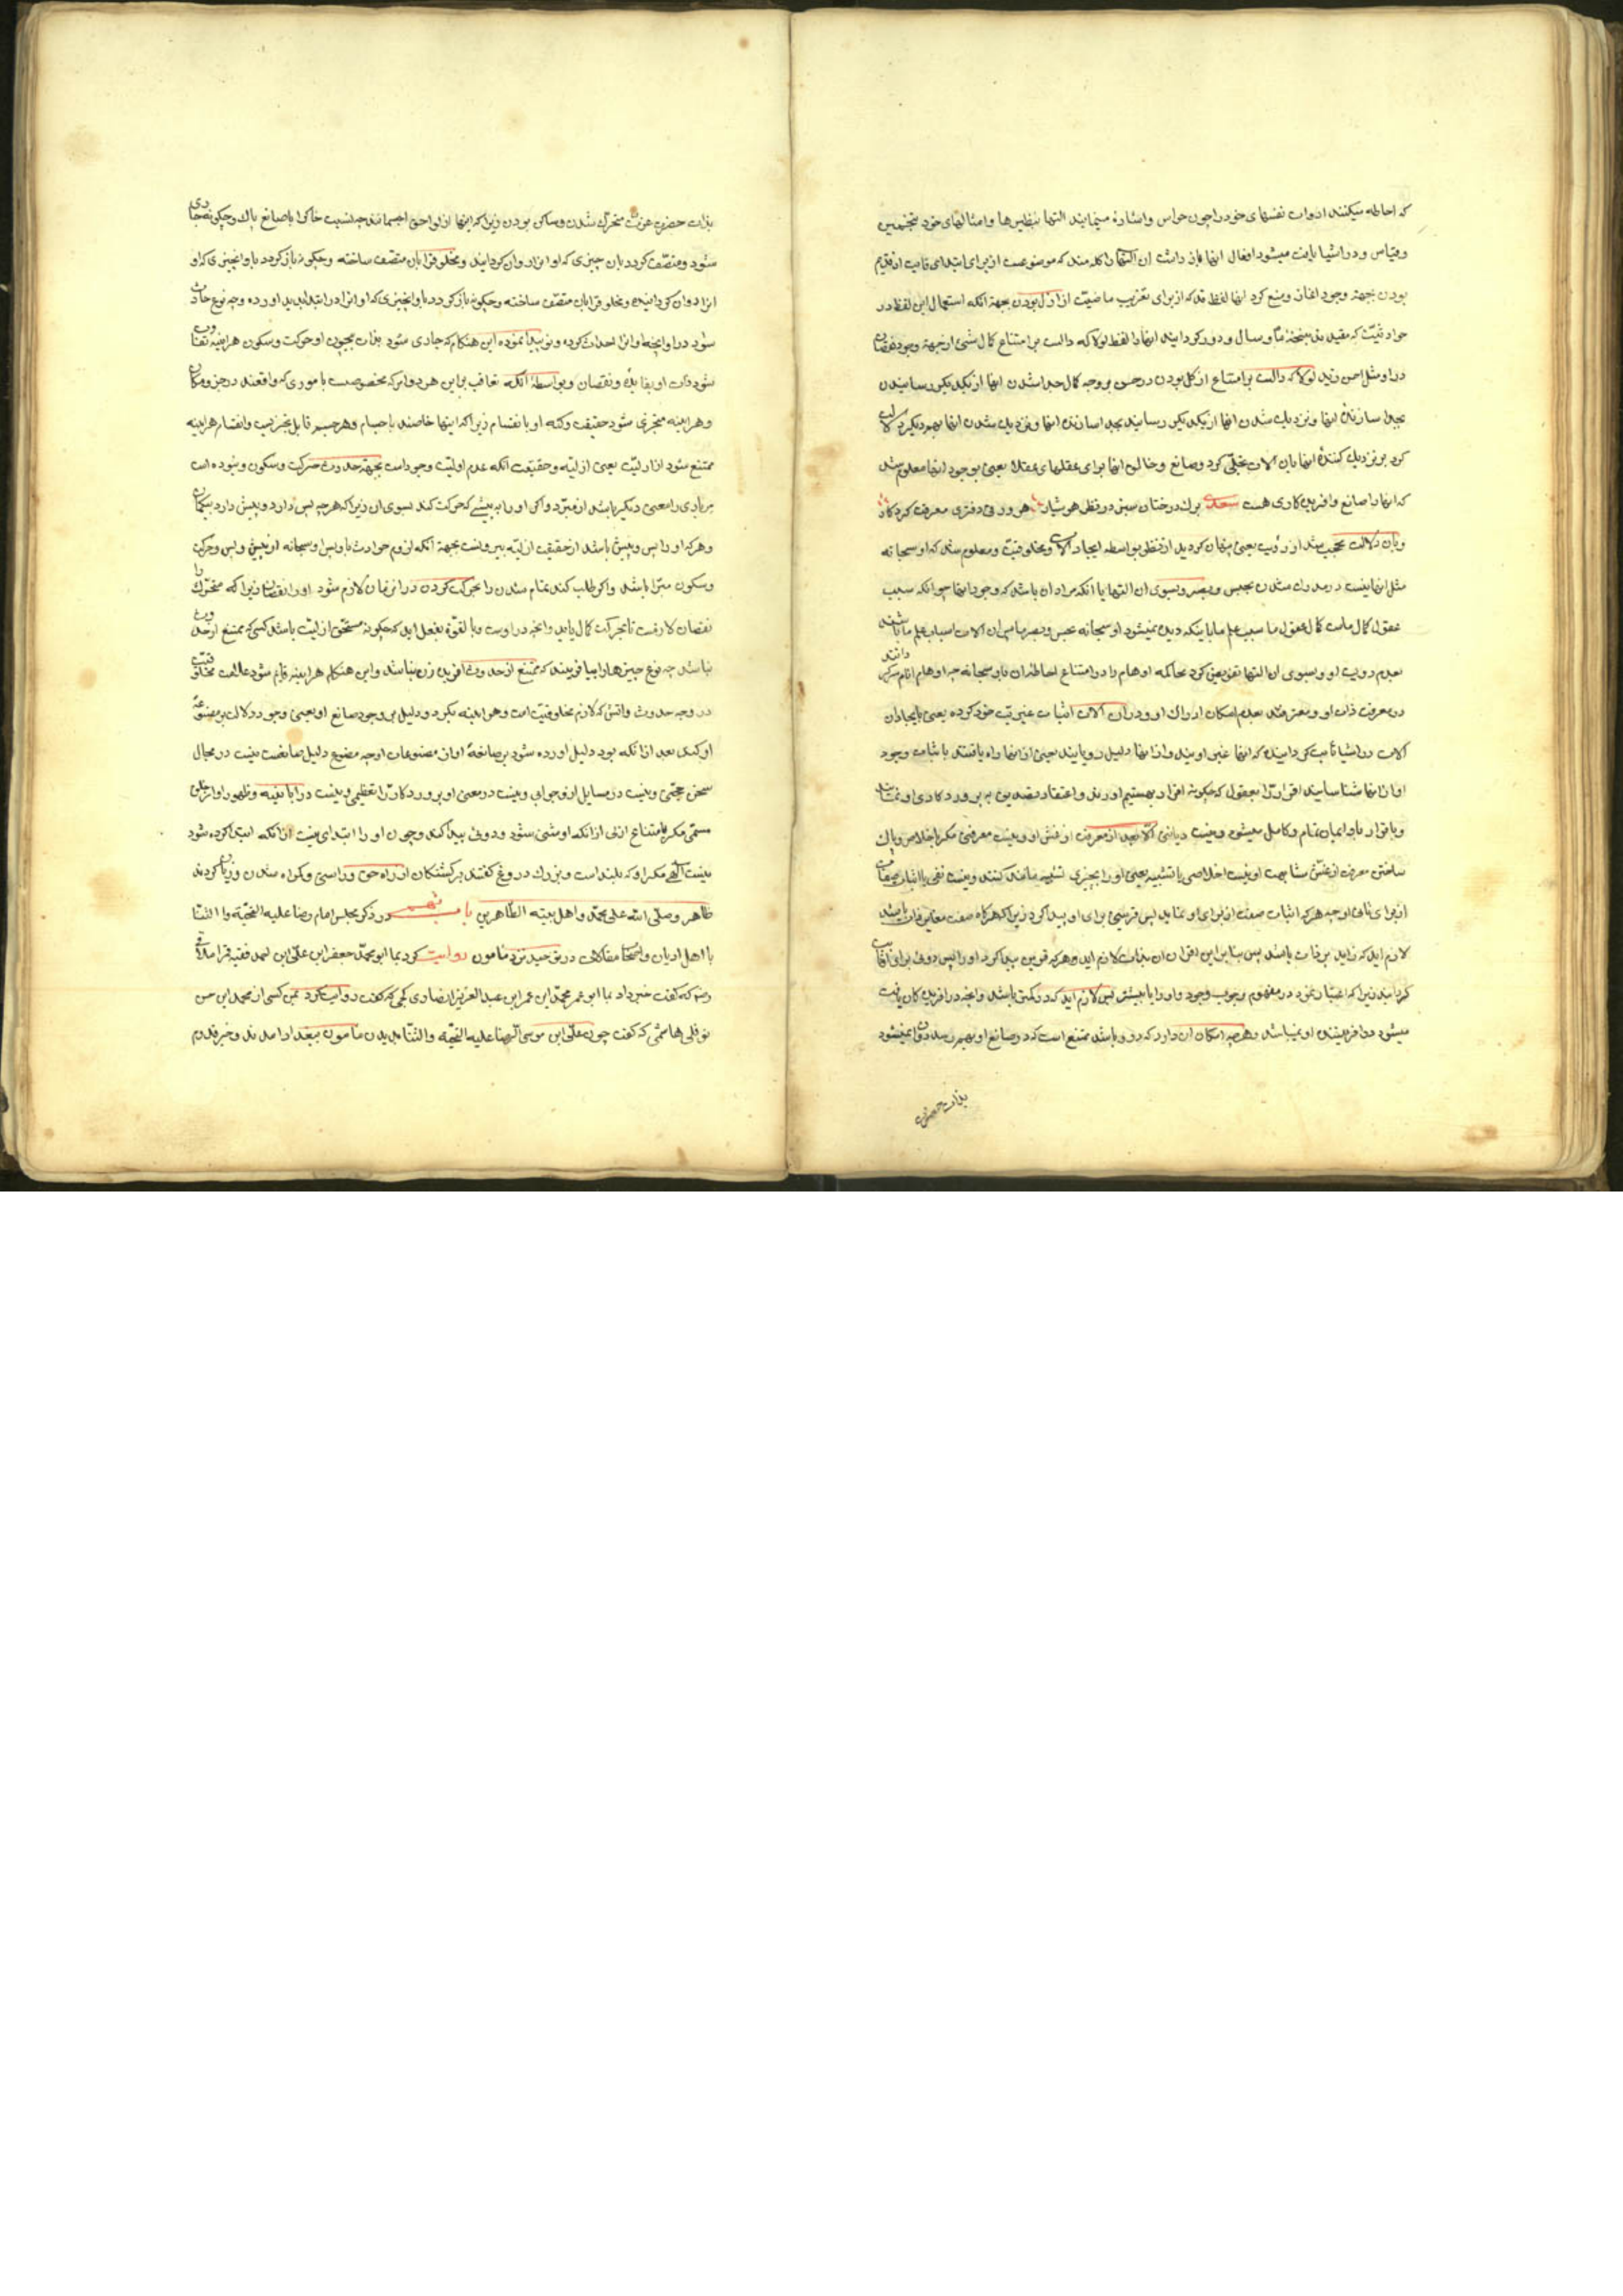 که احاطه میکنند ادوات نفسهای خود را چون حواس و اشاره مینمایند التها بنظیرها و امثالهای خود بتخمین
وقیاس و در اشیا یافت میشود افعال انها باز داشت ان التها را کلمه منذ که موضوعست از برای ابتدای غایت از قدیم
بودن بجهة وجود اغاز و منع کرد انها لفظ قد که از برای تقریب ماضیت از ازل بودن بجهة انکه استعمال این لفظ در
حوادثیت که مقید و سال و دور کردانید انها را لفظ لولا که دالست بر امتناع کمال شئ از جهة وجود نقصان
در او مثل احسن زید لولا که دالست بر امتناع از کل بودن در حسن بر وجه کمال جدا شدن انها از یکدیکر رسانیدن
بجدا سازندۀ انها و نزدیک شدن انها از یکدیکر رسانید بجدا سازندۀ انها و نزدیک شدن انها بهمدیکر دلالت
کرد بر نزدیک کنندۀ انها بان الات تجلی کرد صانع و خالق انها برای عقلهای عقلا یعنی بوجود انها معلوم شد
که انها را صانع و افریدکاری هست سعدی برک درختان سبز در نظر هوشیار هر ورقی دفتری معرفت کردکار
وبان دلالت محجب شد از رؤیت یعنی پنهان کردید از نظر بواسطه ایجاد الات و مخلوقیت و معلوم شد که او سبحانه
مثل انها نیست در مدرک شدن بحس و بصر و بسوی ان التها یا انکه مراد ان باشد که وجود انها چرا نکه سبب
عقول کمال ماست کمال عقول ما سبب علم ما باینکه دیده نمیشود او سبحانه بحس و بصرها پس ان الات اسباب علم ما باشند
بعدم رویت او و بسوی ان التها تفویض کرد محاکمه اوهام را در امتناع احاطه ان باو سبحانه چه اوهام دانند
در معرفت ذات او و معترفند بعدم امکان ادراک او و در ان الات اثبات غیریت خود کرده یعنی بایجاد ان
الات در اشیا ثابت کردانیده که انها غیر اویند و از انها دلیل رویانید یعنی از انها راه یافتند باثبات وجود
او از انها شناسانید اقرار را بعقول که چکونه اقرار بهستیم اورند و اعتقاد بتصدیق به پروردکاری او نمایند
وباقرار باو ایمان تمام و کامل میشود و نیست دیانتی الا بعد از معرفت او و نیست معرفتی مکر باخلاص و پاک
ساختن معرفت از غش مشابهت او نیست اخلاصی با تشبیه یعنی او را بچیزی تشبیه مانند کنند و نیست نفی با اثبات صفات
از برای ثانی او چه هرکه اثبات صفت از برای او نماید پس قرینی برای او پیدا کرد زیرا که هرکاه صفت مغایر ذات باشد
لازم اید که زاید بر ذات باشد پس بنا بر این اقتران ان بذات لازم اید و هرکه قرین پیدا کرد او را پس دوئی برای او اثبات
کردانید زیرا که اعتبار نمود در مفهوم وجوب وجود و او را یا بیشتر پس لازم اید که مرکب باشد و انچه در افریدکان یافت
میشود در افریننده او نمیباشد و هرچه امکان ان دارد که در او باشد ممتنع است که در صانع او بهم رسد روا نمیشود
بذات حضرت
بذات حضرت عزت متحرک شدن و ساکن بودن زیرا که اینها از لواحق اجسامند چه نسبت خاک را با صانع پاک و چکونه جاری
شود و متصف کردد بان چیزی که او انرا روان کردانید و مخلوقرا بان متصف ساخته و چکونه باز کردد باو انچیزی که او
انرا روان کردانیده و مخلوقرا بان متصف ساخته و چکونه باز کردد باو انچیزی که او انرا در ابتدا پدید اورده و چه نوع حادث
شود در او انچه او انرا احداث کرده و نو پیدا نموده این هنکام که جاری شود بذات بیچون او حرکت و سکون هراینه تفاوت
شود ذات او بفایده و نقصان و بواسطۀ انکه تعاقب بر این هر دو امر که مخصوصست باموری که واقعند در حیز و مکان
وهراینه متجزی شود حقیقت وکنه او بانقسام زیرا که اینها خاصند باجسام و هر جسم قابل تجزیه است و انقسام هراینه
ممتنع شود از ازلیت یعنی ازلیه و حقیقت انکه عدم اولیت وجود است بجهة حدوث حرکت و سکون و نبوده است
مر باری را معنی دیکر باشد از مبرد واکر او را به پیشی که حرکت کند بسوی ان زیرا که هرچه پس دارد و پیش دارد بیکمان
وهرکه او را پس و پیش باشد از حقیقت ازلیه بیرونست بجهة انکه لزوم حوادث باو پس او سبحانه از پیش و پس و حرکت
وسکون مبرا باشد و اکر طلب کند تمام شدن را بحرکت کردن در انزمان لازم شود او را نقصان زیرا که متحرک را
نقصان لازمست تا بحرکت کمال یابد و انچه در اوست و بالقوة بفعل اید که چکونه مستحق ازلیت باشد کسی که ممتنع از حدوث
نباشد چه نوع چیزها را بیافریند که ممتنع از حدوث افریدن نباشد و این هنکام هراینه قایم شود علامت مخلوقیت
در وجه حدوث واتش که لازم مخلوقیت است و هراینه بکردد دلیل بر وجود صانع او یعنی وجود او دلالت بر مصنوعیت
او کند بعد از انکه بود دلیل اورده شود بر صانعۀ او از مصنوعات او چه مصنوع دلیل صانعست نیست در مجال
سخن حجتی و نیست در مسایل او جوابی و نیست در معنی او پروردکار را تعظیمی و نیست در ابانتیه و ظهور او از خلق
ستمی مکر بامتناع ازلی از انکه او مثنی شود و دوئی پیدا کند و چون او را ابتدای نیست از انکه ابتدا کرده شود
نیست الهی مکر او که بلند است و بزرک دروغ کفتند برکشتکان از راه حق و راستی و کمراه شدن و زیان کردند
ظاهر وصلی الله علی محمد و اهل بیته الطاهرین باب نهم در ذکر مجلس امام رضا علیه التحیة والثنا
با اهل ادیان و اصحاب مقالات در توحید نزد مامون روایت کرد بما ابو محمد جعفر ابن علی ابن احمد فقیه قمی
رضه که کفت خبر داد بما ابو عمر محمد ابن عمر ابن عبدالعزیز انصاری کجی که کفت روایت کرد بمن کسی از محمد ابن حسن
نوفلی هاشمی که کفت چون علی ابن موسی الرضا علیه التحیة والثنا بدیدن مأمون ببغداد امدند و خبر قدم